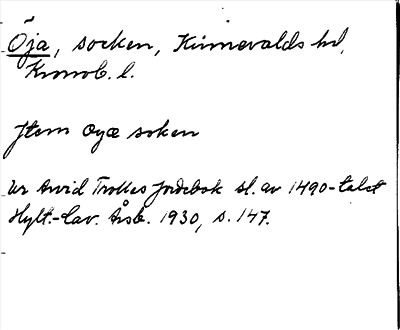 Öja, socken, Kinnevalds hd,
Kronob. l.
Jtem Øyæ soken
Ur Arvid Trolles jordebok sl. av 1490-talet
Hylt.-Cav. Årsb. 1930, s. 147.